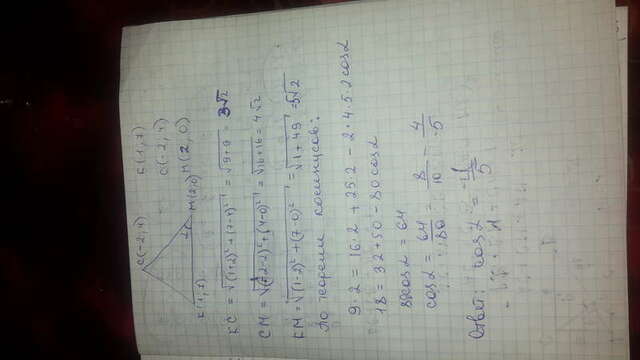 C(-2; 4)
K(1; 7)
C(-2; 4)
M(2; 0)
α
K(1; 7)
M(2; 0)
KC = √(1+2)²+(7-4)² = √9+9 = 3√2
CM = √(-2-2)²+(4-0)² = √16+16 = 4√2
KM = √(1-2)²+(7-0)² = √1+49 = 5√2
По теореме косинусов:
9·2 = 16·2 + 25·2 - 2·4·5·2cosα
18 = 32+50 - 80cosα
80cosα = 64
cosα = 64/80 = 8/10 = 4/5
Ответ: cosα = 4/5